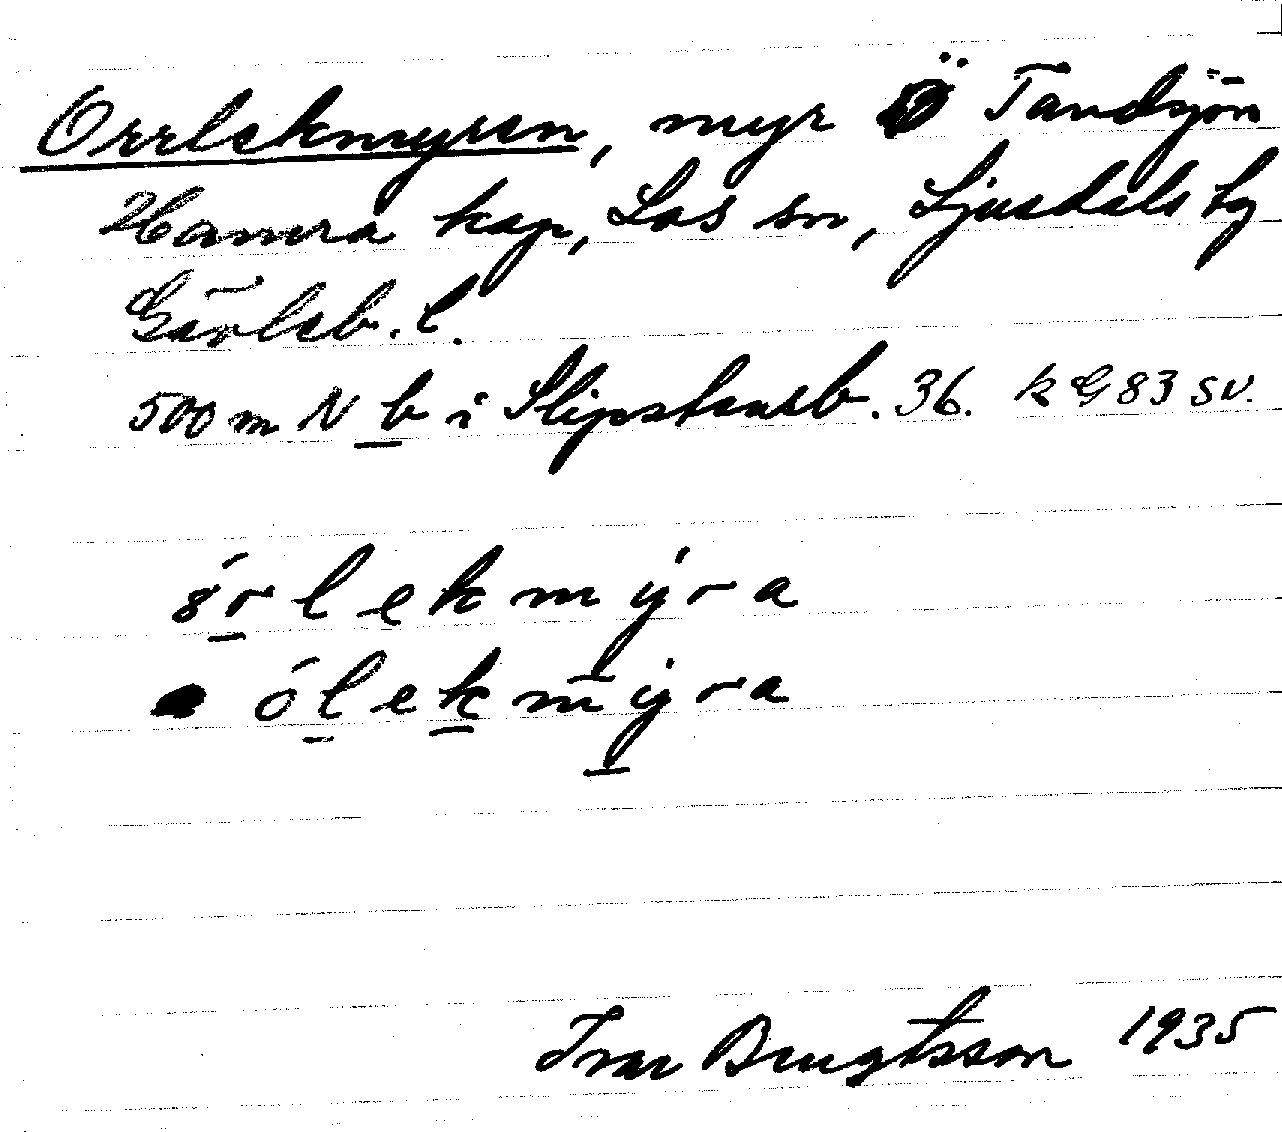 Orrlekmyren, myr Ö Tandsjön
Hamra kap, Los sn, Ljusdals tg
Gävleb. l.
500 m N b i Slipstensb. 36. k G 83 SV.
órlekmýra
ólekmýra
Ivar Bengtsson 1935